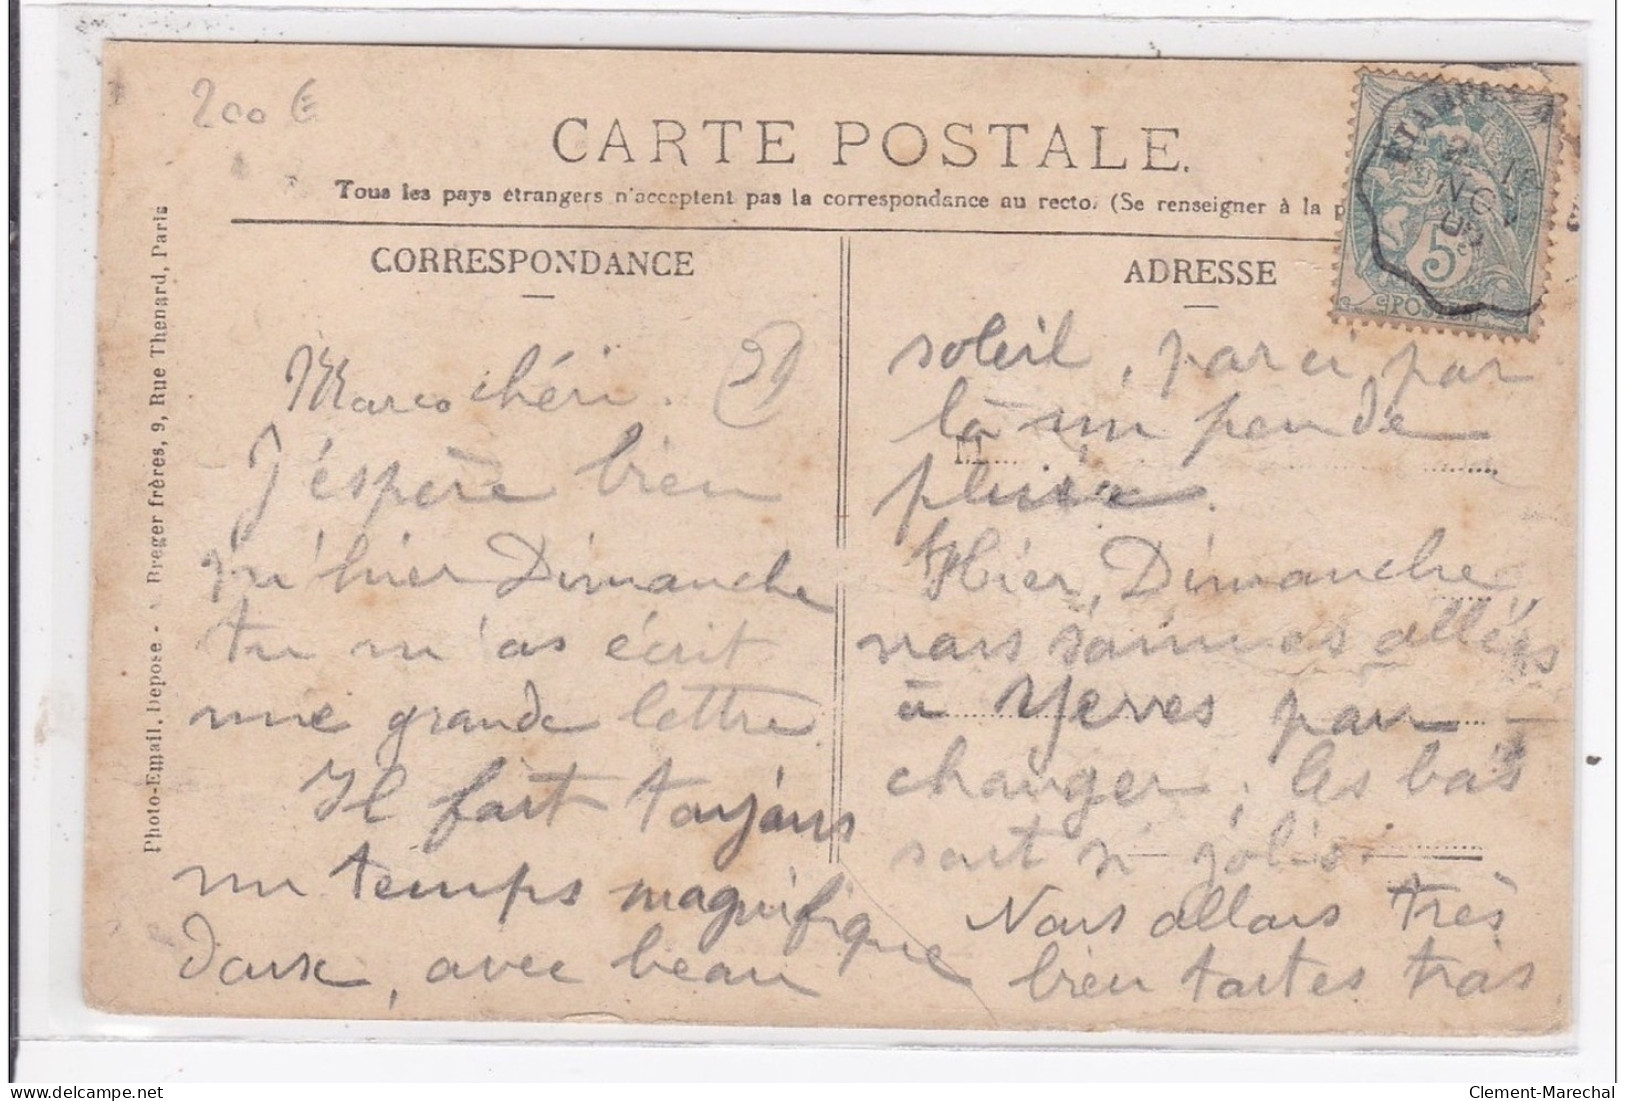 200 €
CARTE POSTALE.
Tous les pays étrangers n'acceptent pas la correspondance au recto. (Se renseigner à la p
CORRESPONDANCE
Marco chéri.
J'éspère bien
qu'hier Dimanche
tu m'as écrit
une grande lettre.
Il fait toujours
un temps magnifique
doux, avec beau
ADRESSE
soleil, par ci, par
là un peu de
pluie.
Hier, Dimanche,
nous sommes allées
à Yerres pour
changer, les bois
sont si jolis.
Nous allons très
bien toutes trois
5
POSTES
Photo-Email, Déposé - Breger frères, 9, Rue Thenard, Paris
Clement-Marechal